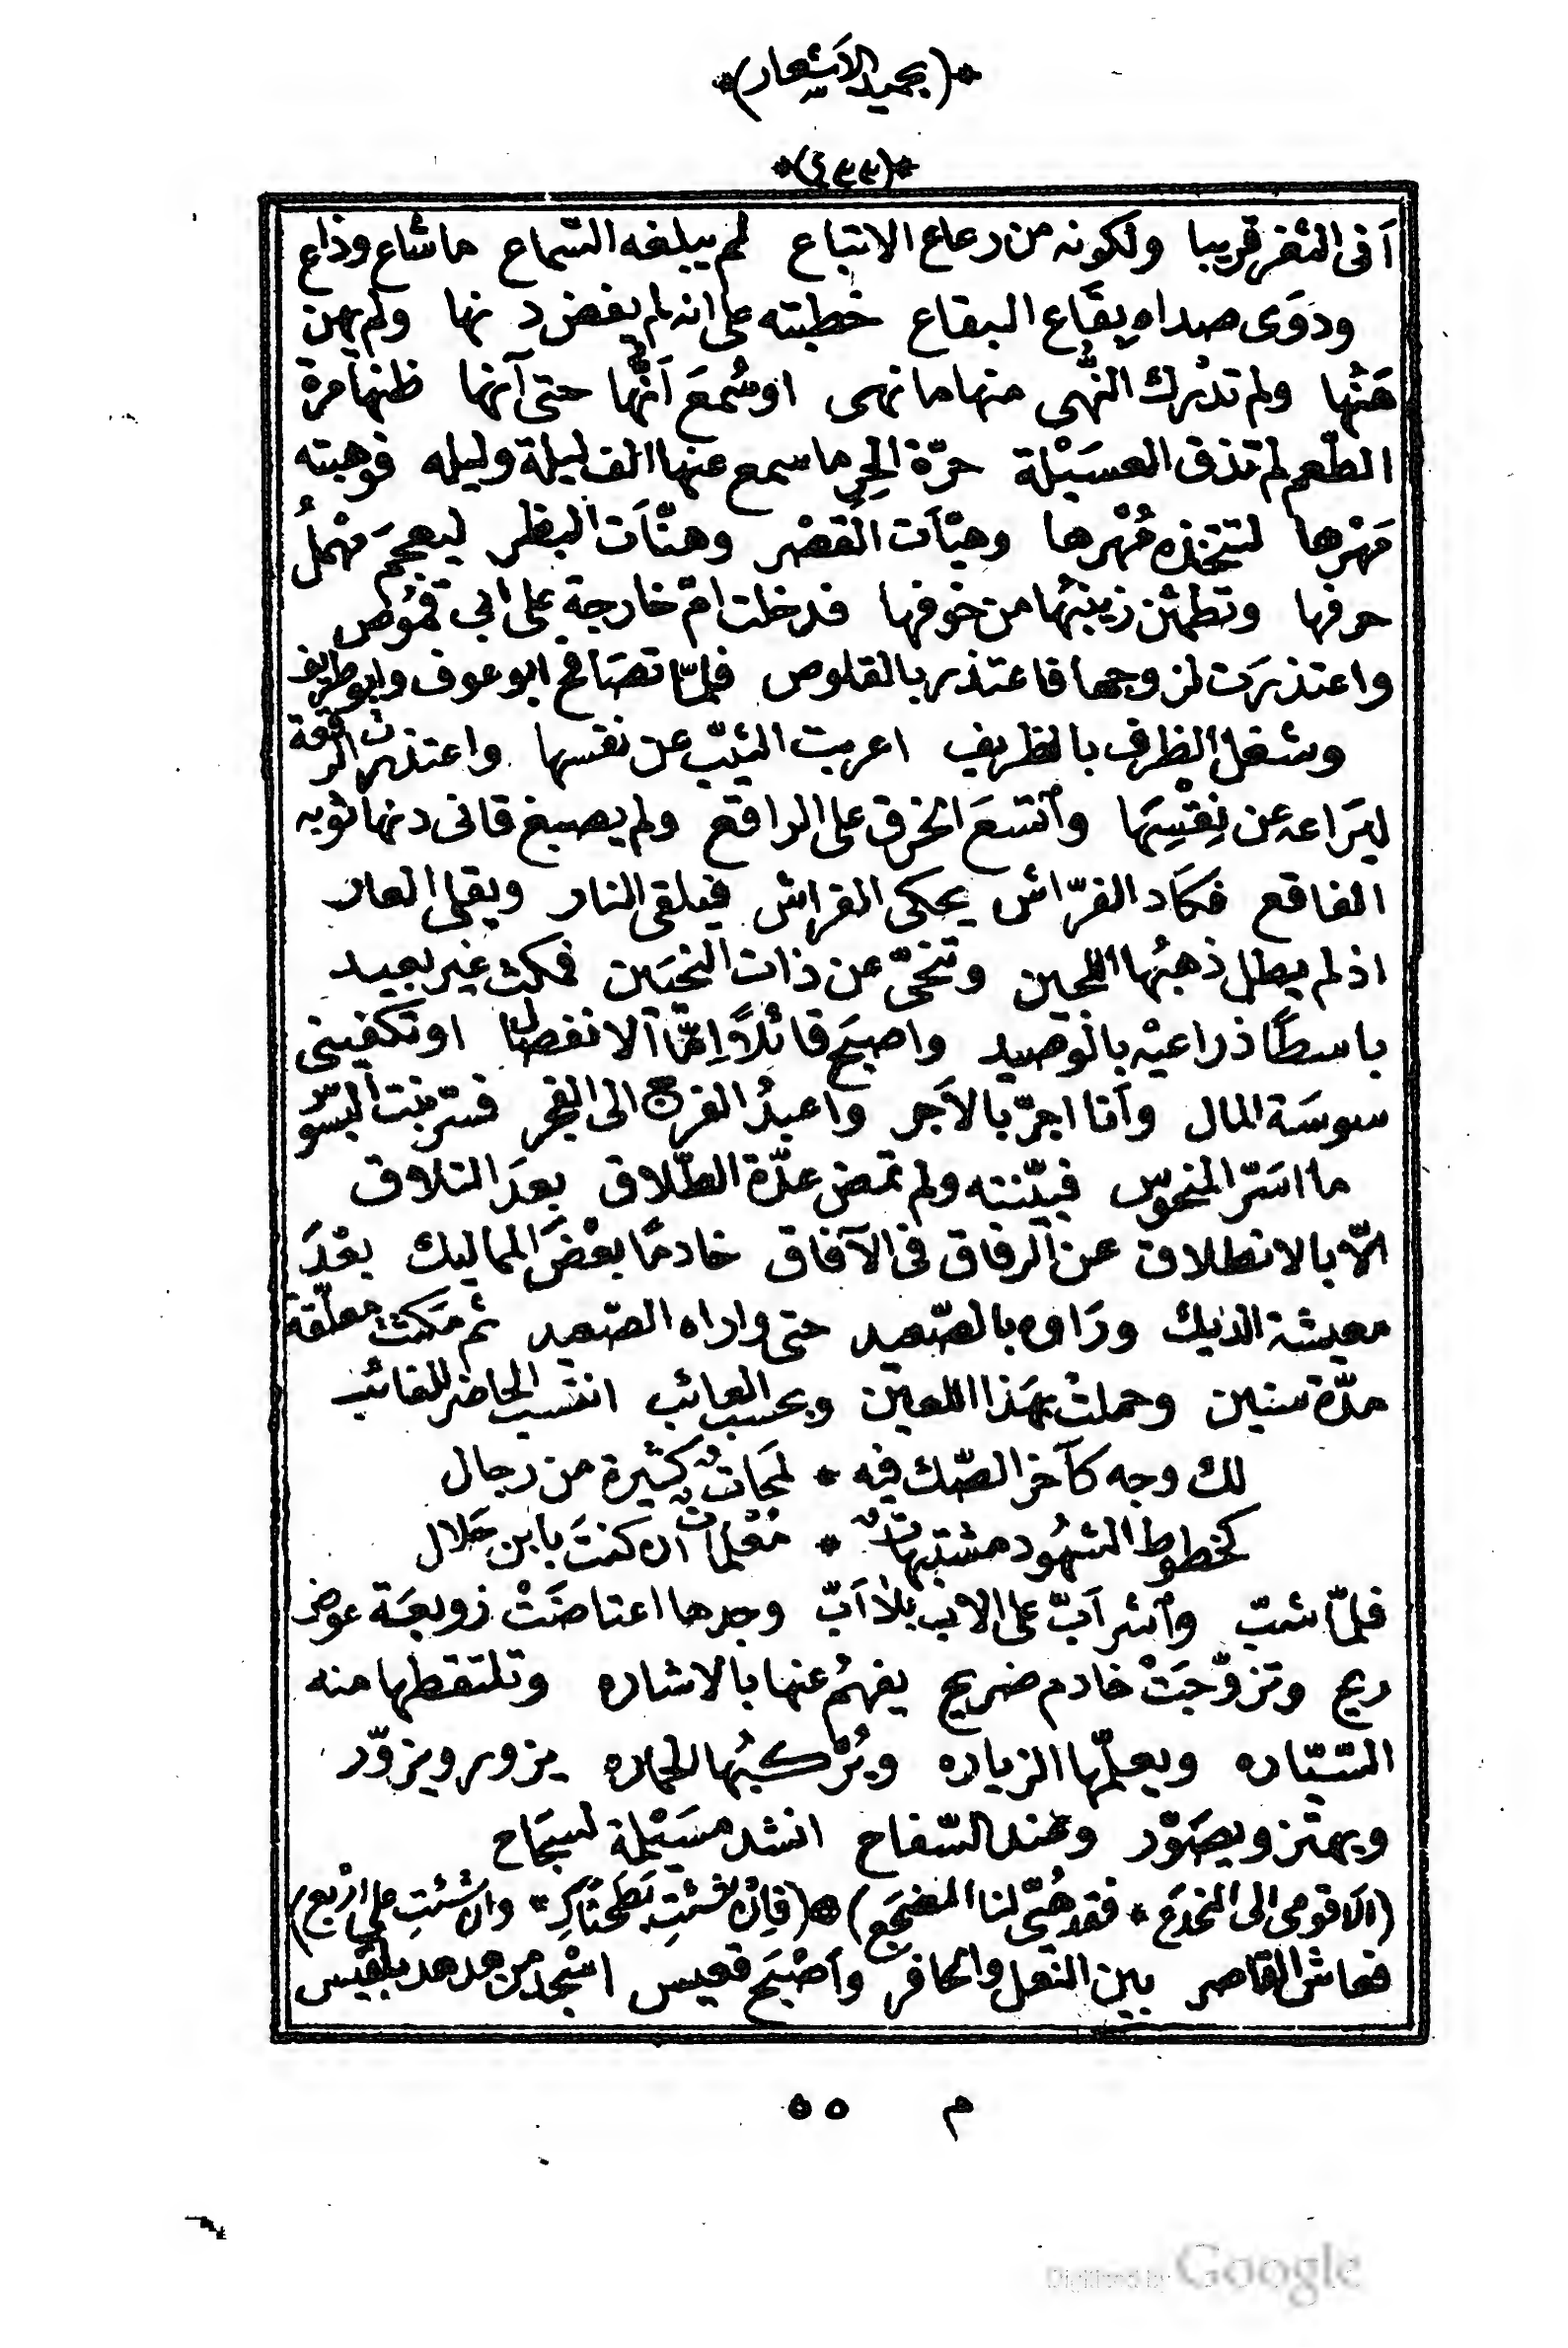 *(بحميد الأشعار)*
*(٤٣٣)*
آفى الثغر قريبا ولكونه من رعاع الاتباع لم يبلغه السّماع ما شاع وذاع
ودوَى صداه بقاع البقاع خطبته على انه لم يفض دنها ولم يهن
هَنُها ولم تدرك النُّهى منها ما نهى او سُمعَ اَنَّها حتى آنها ظنها مرة
الطّعم لم تذق العسَيْلة حرّة الحِرِ ما سمع عنها الف ليلة وليله فوهبته
مَهْرها لتتخذه مُهْرها وهيّأت القصْر وهنّأت البظر ليعجمَ مهْملُ
حرفها وتطمئن زينبُها من خوفها فدخلت امّ خارجة على ابي قموُص
واعتذرَت لزوجها فاعتذر بالقلوص فلمّا تصَافح ابو عوف وابو طريف
وشغل الظرف بالظريف اعربت الثيّب عن نفسها واعتذرت الرقعة
ليَراعه عن نِقْسِهَا واتّسعَ الخرق على الراقع ولم يصبغ قانى دنها ثوبه
الفاقع فكَاد الفرّاش يحكى الفراش فيلقى النار ويقلى العار
اذ لم يطل ذهبُها اللجين وتنحّى عن ذات النحيَين فمكث غير بعيد
باسطًا ذراعيْه بالوصيد واصبحَ قائلاً اِمّا الانفصال او تكفينى
سوسَة المال وآنا اجرّ بالاَجر واعيدُ الفرح الى الفجر فسترت بنت البسّو
ما اسَرّ المنحوس فبيّنته ولم تمض عدّة الطّلاق بعدَ التلاق
الاّ بالانطلاق عن الرفاق فى الآفاق خادمًا بعْضَ المماليك بعْدَ
معيشة الديك ورَاوه بالصّعيد حتى واراه الصّعيد ثم مَكثت معلّقة
مدّة سنين وحملتْ بهَذا اللعين وبحسب العائب انتسب الحاضر للغائب
لك وجه كآخر الصّك فيه * لمحَاتٌ كثيرة من رجال
كخطوط الشهُود مشتبهاتٌ * مُعْلمات ان كنتَ بابن حَلال
فلمّا شبّ وآشرَأبّ على الاب بلا اَبّ وجدها اعتاضَتْ زوبعَة عوض
ريح وتزوّجَتْ خادم ضريح يفهمُ عنها بالاشاره وتلتقطها منه
السّيّاره ويعلّمها الزياره ويُرْكبُها الحماره يزور ويزوّر
ويهتز ويصَوّر وعند السّفاح انشد مسَيْلة لسجَاح
(اَلا قومى الى المخدَع * فقد هُيّى لنا المضجَع) * (فاِن شئتِ بَطَحْنَاكِ * وان شئتِ على ارْبع)
فعاش القاصر بين النعل والحافر وآصْبَح قعيس اسْجد من هدهد بلقيس
م ٥٥
Digitized by Google